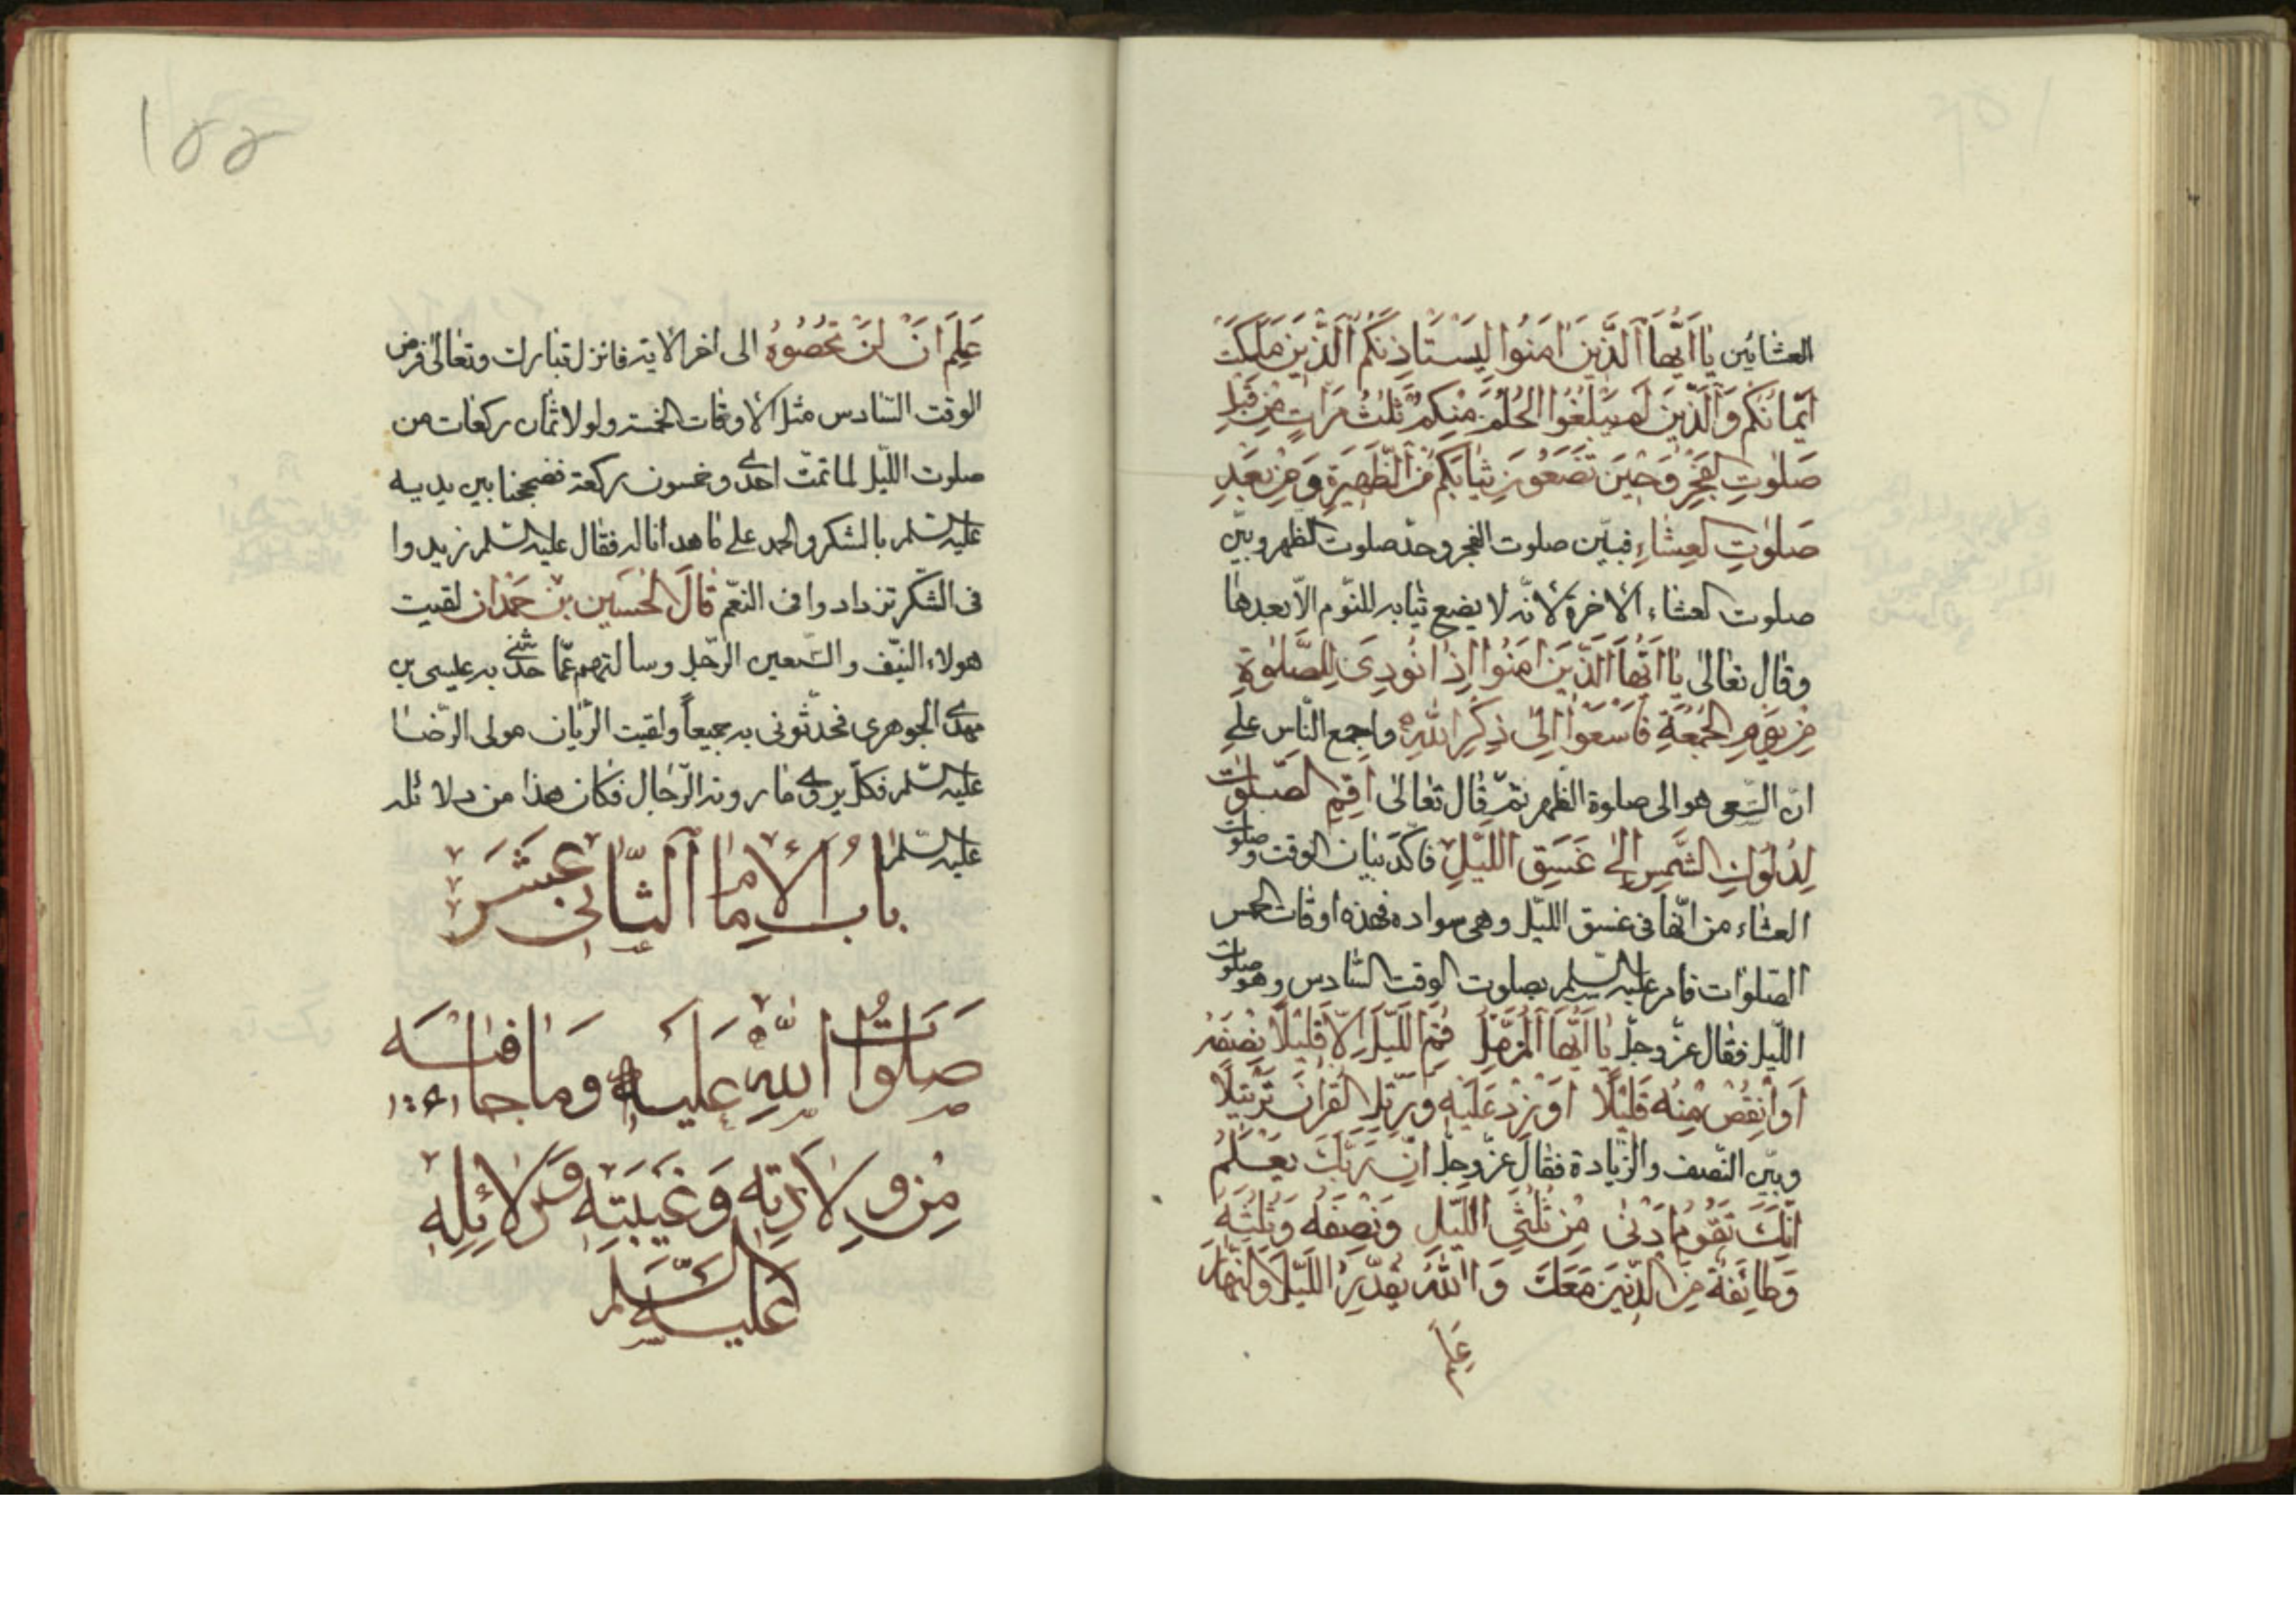 العشائين يا ايها الذين امنوا ليستاذنكم الذين ملكت
ايمانكم والذين لم يبلغوا الحلم منكم ثلث مرات من قبل
صلوت الفجر وحين تضعون ثيابكم من الظهيرة ومن بعد
صلوت العشاء فبين صلوت الفجر وحد صلوت الظهر وبين
صلوت العشاء الاخرة لانه لا يضع ثيابه للنوم الا بعدها
وقال تعالى يا ايها الذين امنوا اذا نودي للصلوة
من يوم الجمعة فاسعوا الى ذكر الله واجمع الناس على
ان السعى هو الى صلوة الظهر ثم قال تعالى اقم الصلوت
لدلوك الشمس الى غسق الليل فاكد بيان الوقت وصلوت
العشاء من انها فى غسق الليل وهى سواده فهذه اوقات الخمس
الصلوات فامر عليه السلم بصلوت الوقت السادس وهو صلوت
الليل فقال عز وجل يا ايها المزمل قم الليل الا قليلا نصفه
او انقص منه قليلا او زد عليه ورتل القران ترتيلا
وبين النصف والزيادة فقال عز وجل ان ربك يعلم
انك تقوم ادنى من ثلثي الليل ونصفه وثلثه
وطائفة من الذين معك والله يقدر الليل والنهار
علم
١٥٥
علم ان لن تحصوه الى اخر الاية فانزل تبارك وتعالى فرض
الوقت السادس مثل الاوقات الخمسة ولولا ثمان ركعات من
صلوت الليل لما تمت احدى وخمسون ركعة فضججنا بين يديه
عليه السلم بالشكر والحمد على ما هدانا له فقال عليه السلم زيدوا
فى الشكر تزدادوا فى النعم قال الحسين بن حمدان لقيت
هولاء النيف والسبعين الرجل وسالتهم عما حدثنى به عيسى بن
مهدى الجوهرى فحدثونى به جميعاً ولقيت الريان مولى الرضا
عليه السلم فكل يروى ما روته الرجال فكان هذا من دلائله
عليه السلم
باب الامام الثانى عشر
صلوات الله عليه وما جا فيه
من ولادته وغيبته ودلائله
عليه السلم